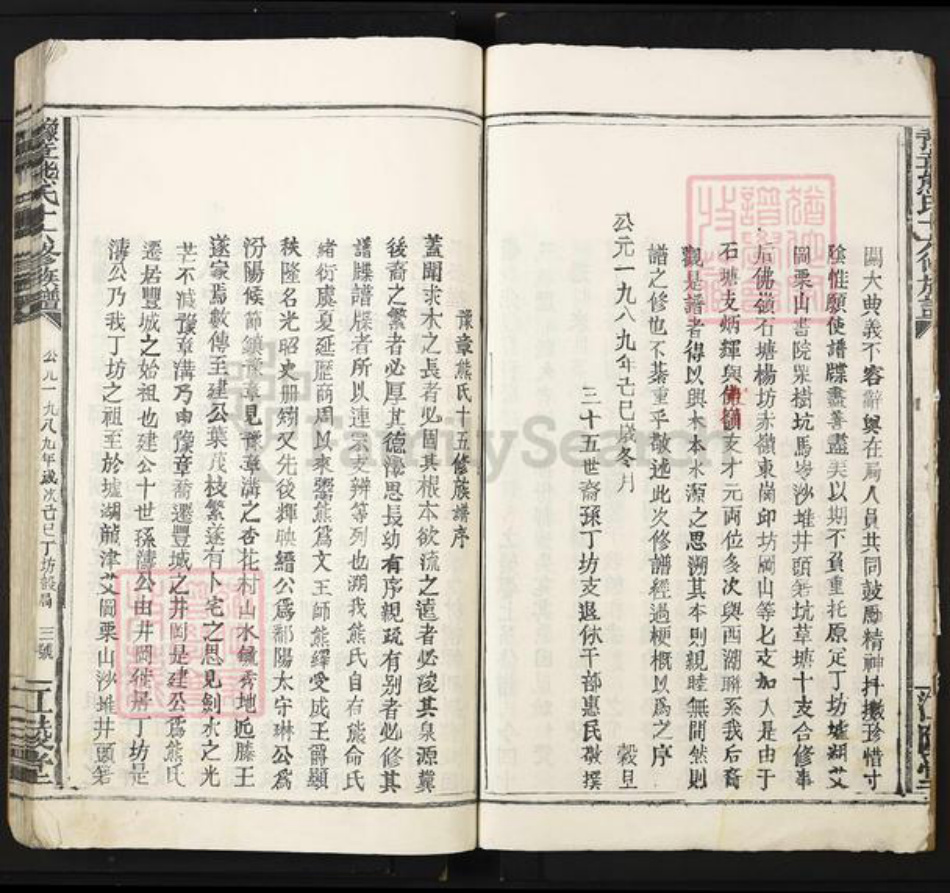 關大典義不容辭與在局人員共同鼓勵精神抖擻珍惜寸
陰惟願使譜牒盡善盡美以期不負重托原定丁坊墟湖艾
岡栗山書院渠樹坑馬岑沙堆井頭窑坑草塘十支合修事
后佛嶺石塘楊坊赤嶺東崗邱坊崗山等七支加入是由于
石塘支炳輝與佛嶺支才元両位多次與西湖聯系我后裔
觀是譜者得以興木本水源之思溯其本則親睦無間然則
譜之修也不綦重乎敬述此次修譜經過梗概以為之序
公元一九八九年己巳嵗冬月 穀旦
三十五世裔孫丁坊支退休干部惠民敬撰
豫章熊氏十五修族譜序
蓋聞求木之長者必固其根本欲流之遠者必浚其泉源冀
後裔之繁者必厚其德澤思長幼有序親疏有别者必修其
譜牒譜牒者所以連宗支辨等列也溯我熊氏自有熊命氏
緒衍虞夏延歷商周以來鬻熊爲文王師熊繹受成王爵顯
秩隆名光昭史册矧又先後輝映縉公爲鄱陽太守琳公爲
汾陽候節鎮豫章見豫章溝之杏花村山水鍾秀地近滕王
遂家焉數傳至建公葉茂枝繁遂有卜宅之思見劍水之光
芒不減豫章溝乃由豫章喬遷豐城之井岡是建公爲熊氏
遷居豐城之始祖也建公十世孫濤公由井岡徙居丁坊是
濤公乃我丁坊之祖至於墟湖龍津艾岡栗山沙堆井頭窑
豫章熊氏十六修族譜
公元一九八九年歲次己巳丁坊設局
三號
江陵堂
FamilySearch